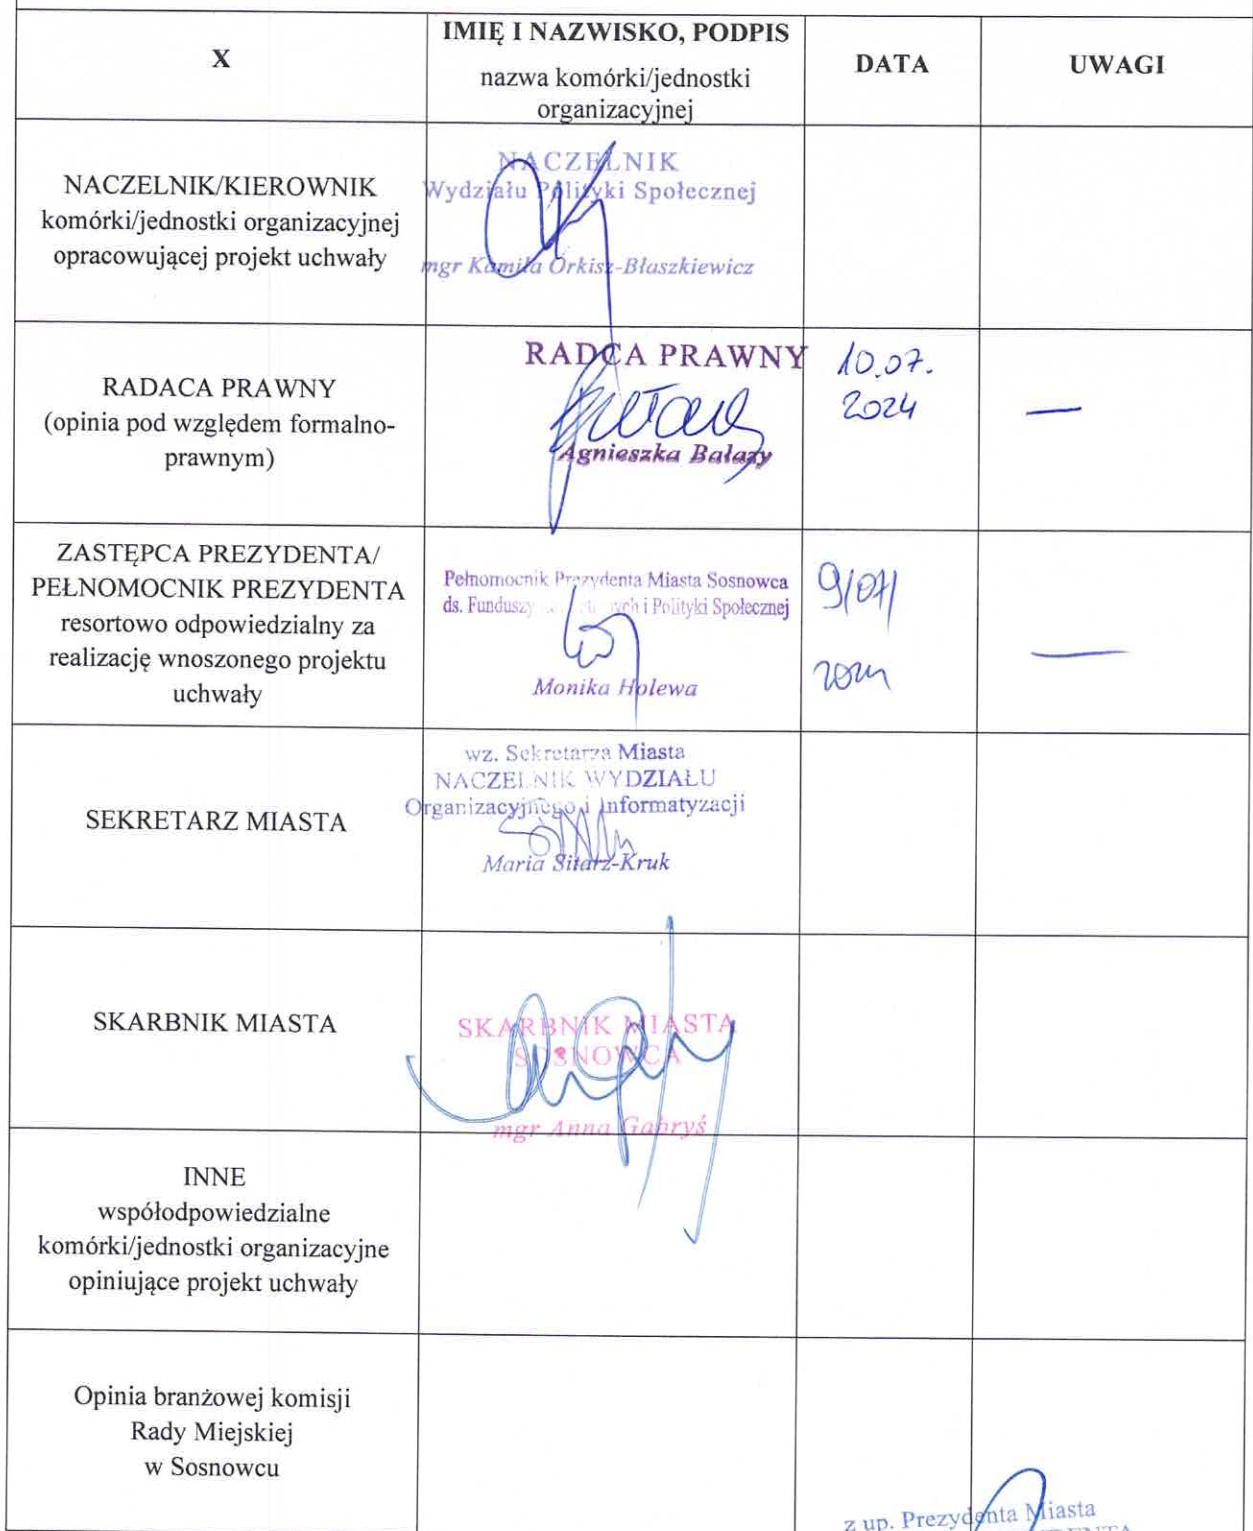 X
IMIĘ I NAZWISKO, PODPIS
nazwa komórki/jednostki
organizacyjnej
DATA
UWAGI
NACZELNIK/KIEROWNIK
komórki/jednostki organizacyjnej
opracowującej projekt uchwały
NACZELNIK
Wydziału Polityki Społecznej
mgr Kamila Orkisz-Błaszkiewicz
RADACA PRAWNY
(opinia pod względem formalno-
prawnym)
RADCA PRAWNY
Agnieszka Bałazy
10.07.
2024
—
ZASTĘPCA PREZYDENTA/
PEŁNOMOCNIK PREZYDENTA
resortowo odpowiedzialny za
realizację wnoszonego projektu
uchwały
Pełnomocnik Prezydenta Miasta Sosnowca
ds. Funduszy i Polityki Społecznej
Monika Holewa
9/07/
2024
—
SEKRETARZ MIASTA
wz. Sekretarza Miasta
NACZELNIK WYDZIAŁU
Organizacyjnego i Informatyzacji
Maria Sitarz-Kruk
SKARBNIK MIASTA
SKARBNIK MIASTA
SOSNOWCA
mgr Anna Gabryś
INNE
współodpowiedzialne
komórki/jednostki organizacyjne
opiniujące projekt uchwały
Opinia branżowej komisji
Rady Miejskiej
w Sosnowcu
z up. Prezydenta Miasta